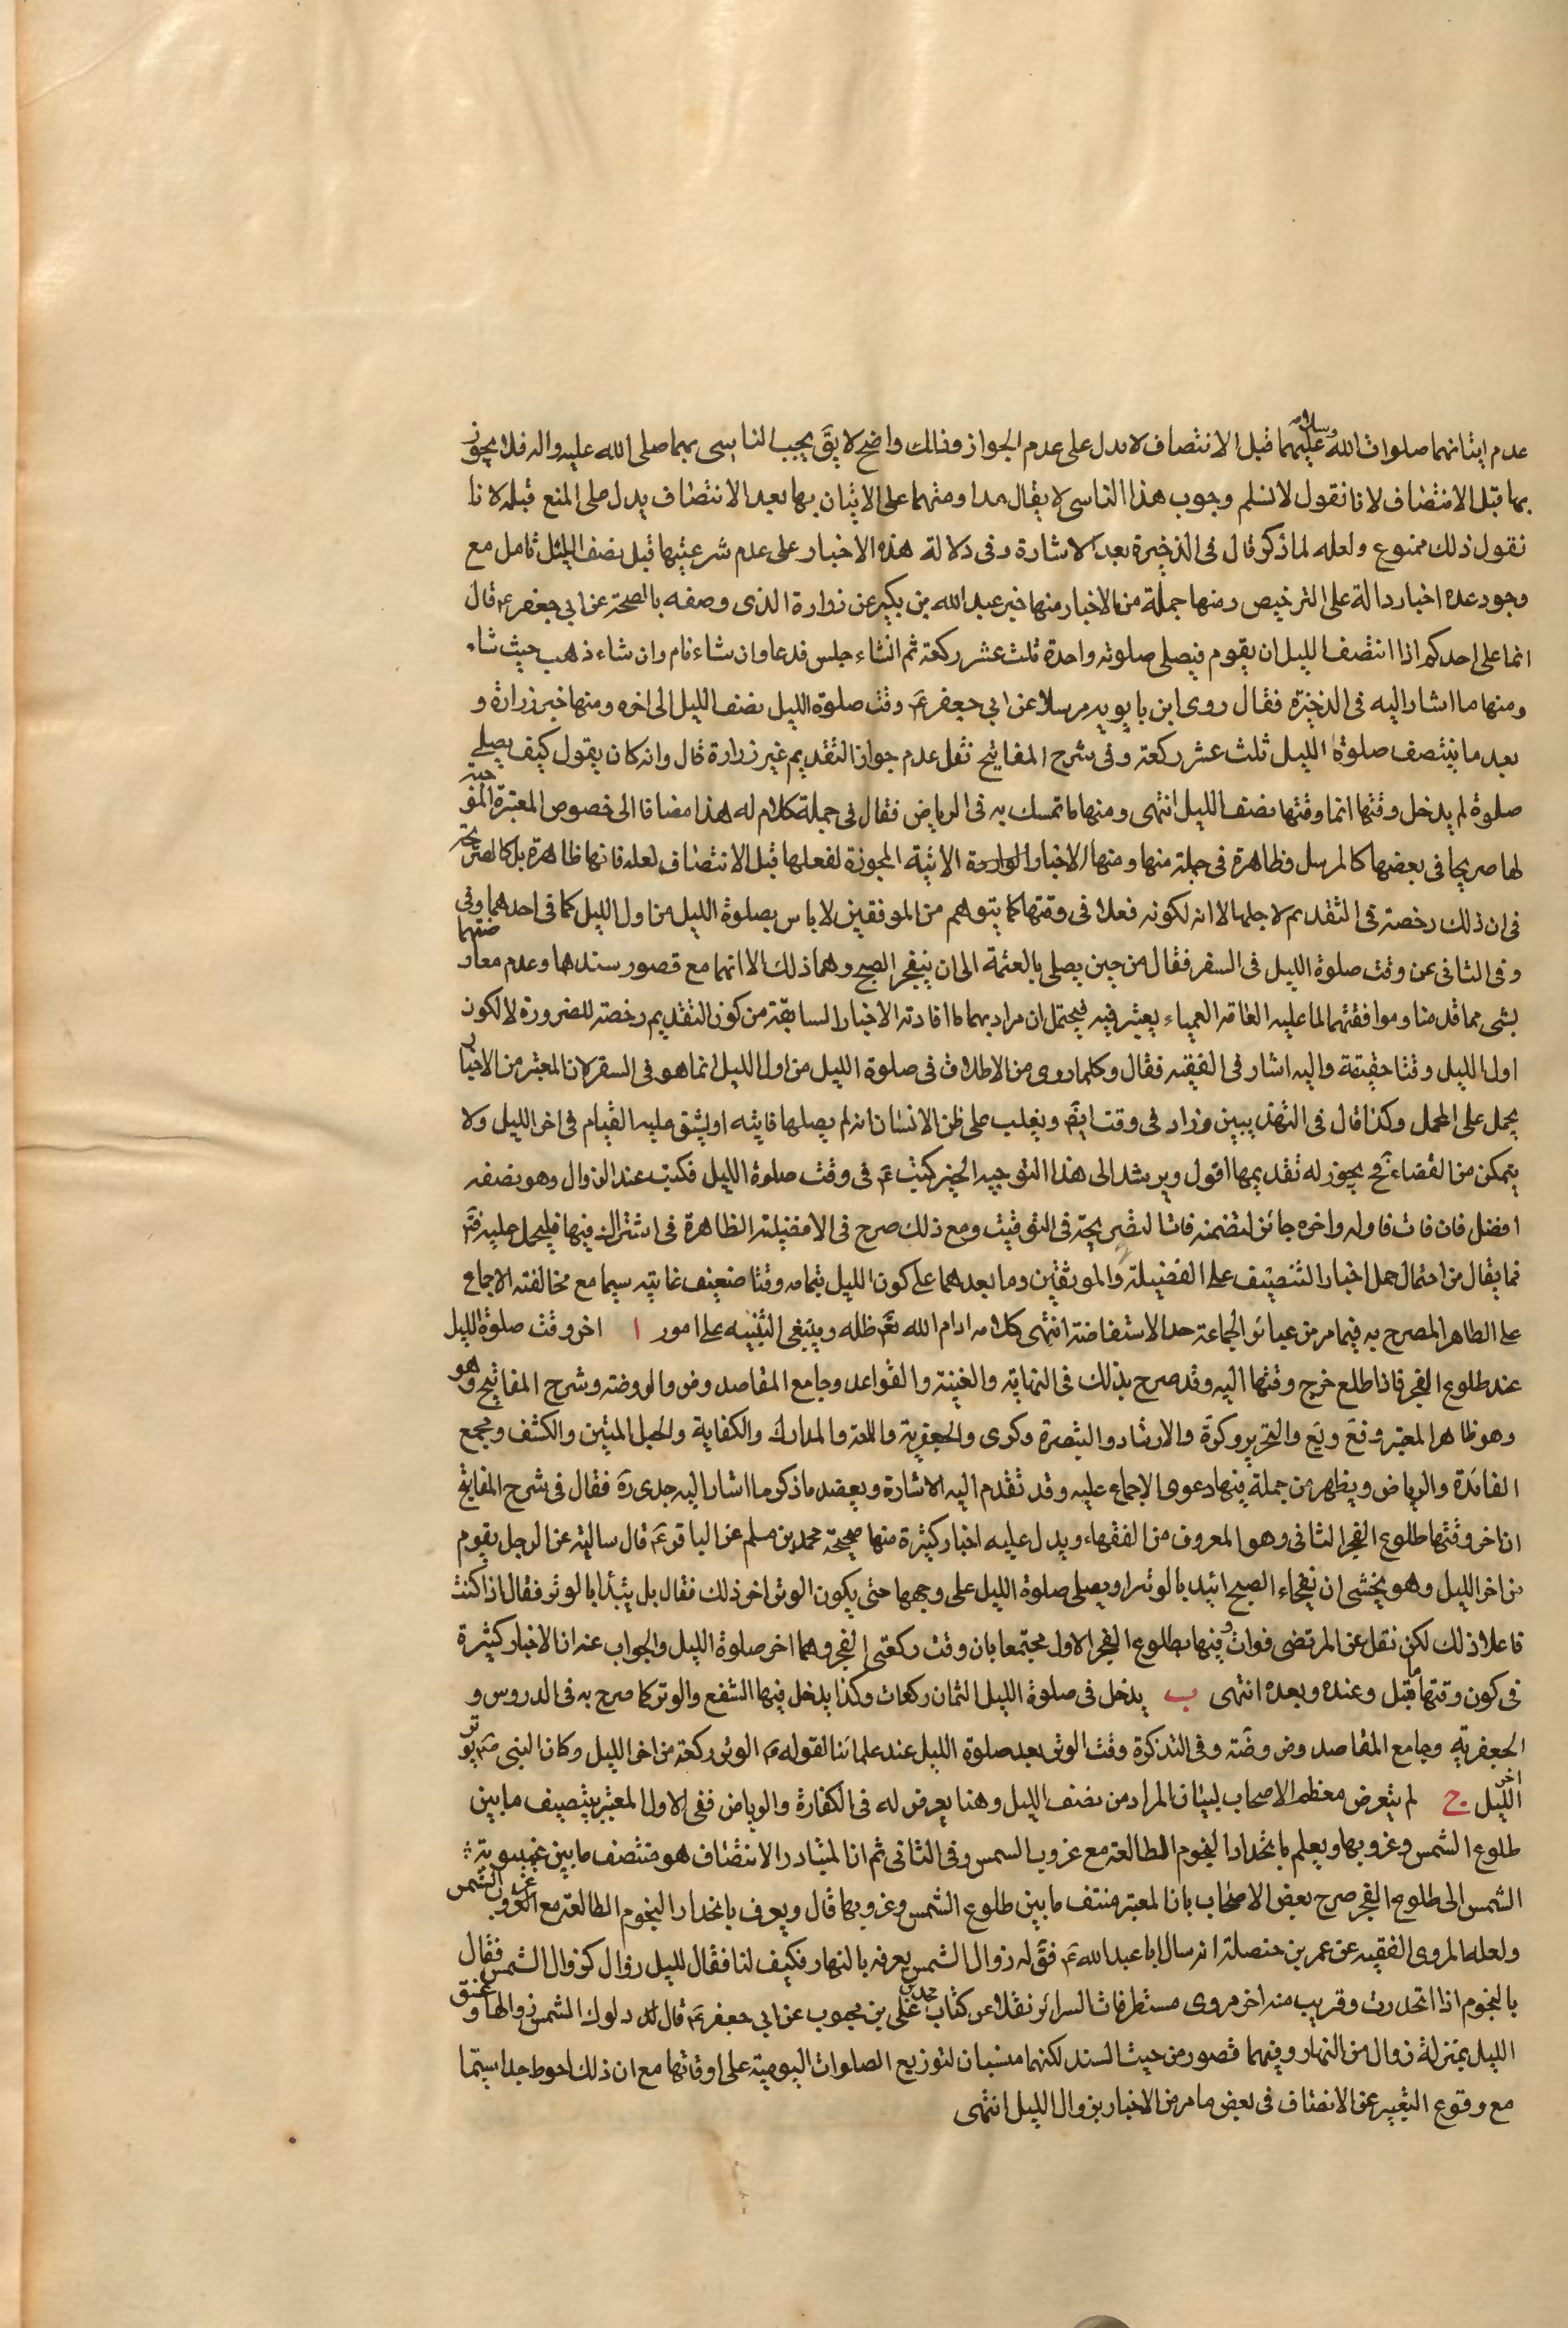 عدم ايتانهما صلوات الله وسلامه عليهما قبل الانتصاف لا يدل على عدم الجواز وذلك واضح لا يقَ يجب الناسى بهما صلى الله عليه واله فلا يجوز
بها قبل الانتصاف لانا نقول لا نسلم وجوب هذا التاسى لا يقال مداومتهما على الاتيان بها بعد الانتصاف يدل على المنع قبله لانا
نقول ذلك ممنوع ولعله لما ذكر قال فى الذخيرة بعد الاشارة وفى دلالة هذه الاخبار على عدم شرعيتها قبل نصف الليل تامل مع
وجود عدة اخبار دالة على الترخيص ومنها جملة من الاخبار منها خبر عبد الله بن بكير عن زرارة الذى وصفه بالصحة عن ابي جعفر ع قال
انما على احدكم اذا انتصف الليل ان يقوم فيصلى صلوته واحدة ثلث عشر ركعة ثم انشاء جلس فدعا وان شاء نام وان شاء ذهب حيث شاء
ومنها ما اشار اليه فى الذخيرة فقال روى ابن بابويه مرسلا عن ابي جعفر عَ وقت صلوة الليل نصف الليل الى اخره ومنها خبر زرارة و
بعد ما ينتصف صلوة الليل ثلث عشر ركعة وفى شرح المفاتيح نقل عدم جواز التقديم غير زرارة قال وانه كان يقول كيف يصلى
صلوة لم يدخل وقتها انما وقتها نصف الليل انتهى ومنها ما تمسك به فى الرياض فقال فى جملة كلام له هذا مضافا الى خصوص المعتبرة الموجبة
لها صريحا فى بعضها كالمرسل وظاهرة فى جملة منها ومنها الاخبار الواردة الاتية المجوزة لفعلها قبل الانتصاف لعله فانها ظاهرة بل كالصريحة
فى ان ذلك رخصة فى التقديم لاجلها لا انه لكونه فعلا فى وقتها كما يتوهم من الموفقين لا باس بصلوة الليل من اول الليل كما فى احدهما وفى
وفى الثانى عن وقت صلوة الليل فى السفر فقال من حين يصلى بالعتمة الى ان ينفجر الصبح وهما ذلك الا انهما مع قصور سندهما وعدم معارضتهما
بشى مما قدمنا وموافقتهما لما عليه العامة العمياء يعتبر فيه فيحتمل ان مراد بهما ما افادته الاخبار السابقة من كون التقديم رخصة للضرورة لا لكون
اول الليل وقتا حقيقة واليه اشار فى الفقيه فقال وكلما روى من الاطلاق فى صلوة الليل من اول الليل انما هو فى السفر لان المعتبر من الاخبار
يحمل على المجمل وكذا قال فى التهذيبين وزاد فى وقت ايضَ ويغلب على ظن الانسان انه لم يصلها فايته او يشق عليه القيام فى اخر الليل ولا
يتمكن من القضاء فح يجوز له تقديمها اقول ويرشد الى هذا التوجيه الخبر كتبت عَ فى وقت صلوة الليل فكتب عند الزوال وهو نصفه
افضل فان فات فاوله واخره جائز لتضمنه فاثا لتصريحة فى التوقيت ومع ذلك صرح فى الافضيلة الظاهرة فى اشتراك فيها فليحمل عليه
فما يقال من احتمال حمل اخبار التنصيف على الفضيلة والموثقين وما بعدهما على كون الليل بتمامه وقتا ضعيف غايته سيما مع مخالفته الاجماع
على الظاهر المصرح به فيما مر من عبائر الجماعة حد الاستفاضة انتهى كلامه ادام الله تعَ ظله وينبغى التنبيه على امور ا اخر وقت صلوة الليل
عند طلوع الفجر فاذا طلع خرج وقتها اليه وقد صرح بذلك فى النهاية والغنية والقواعد وجامع المقاصد وض والروضة وشرح المفاتيح وهو
وهو ظاهر المعتبر وفَع ويَع والتحرير وكرَة والارشاد والتبصرة وكرى والجعفرية واللمة والمدارك والكفاية والحبل المتين والكشف ومجمع
الفائدة والرياض ويظهر من جملة فيها دعوى الاجماع عليه وقد تقدم اليه الاشارة ويعضد ما ذكر ما اشار اليه جدى رَه فقال فى شرح المفاتيح
ان اخر وقتها طلوع الفجر الثانى وهو المعروف من الفقهاء ويدل عليه اخبار كثيرة منها صحيحة محمد بن مسلم عن الباقر عَ قال سالته عن الرجل يقوم
من اخر الليل وهو يخشى ان يفجاء الصبح ايبدء بالوتر او يصلى صلوة الليل على وجهها حتى يكون الوتر اخر ذلك فقال بل يبدأ بالوتر فقال اذا كنت
فاعلا ذلك لكن نقل عن المرتضى فوات وفيها بطلوع الفجر الاول محتمعا بان وقت ركعتى الفجر وهما اخر صلوة الليل والجواب عنه ان الاخبار كثيرة
فى كون وقتها ما قبل وعنده وبعده انتهى ب يدخل فى صلوة الليل الثمان ركعات وكذا يدخل فيها الشفع والوتر كما صرح به فى الدروس و
الجعفرية وجامع المقاصد وض وضَة وفى التذكرة وقت الوتر بعد صلوة الليل عند علمائنا لقوله صَ الوتر ركعة من اخر الليل وكان النبى صَ يوتر
اخر الليل ج لم يتعرض معظم الاصحاب لبيان المراد من نصف الليل وهنا يعرض له فى الكفارة والرياض ففى الاول المعتبر بتنصيف ما بين
طلوع الشمس وغروبها ويعلم بانحدار النجوم الطالعة مع غروب الشمس وفى الثانى ثم ان المتبادر الانتصاف هو منتصف ما بين غيبوبة
الشمس الى طلوع الفجر صرح بعض الاصحاب بان المعتبر منتف ما بين طلوع الشمس وغروبها قال ويعرف بانحدار النجوم الطالعة مع الغروب غروب الشمس
ولعله المروى الفقيه عن عمر بن حنصلة انه سال ابا عبد الله عَ فقَ له زوال الشمس يعرفه بالنهار فكيف لنا فقال لليل زوال كزوال الشمس فقال
بالنجوم اذا انحدرت وقريب منه اخر مروى مستطرفات السرائر نقلا عن كتاب محمد بن على بن محبوب عن ابي جعفر عَ قال لك دلوك الشمس زوالها وغسق
الليل بمنزلة زوال من النهار وفيهما قصور من حيث السند لكنهما منسبان لتوزيع الصلوات اليومية على اوقاتها مع ان ذلك احوط جدا سيتما
مع وقوع التعبير عن الانصاف فى بعض ما مر من الاخبار بزوال الليل انتهى